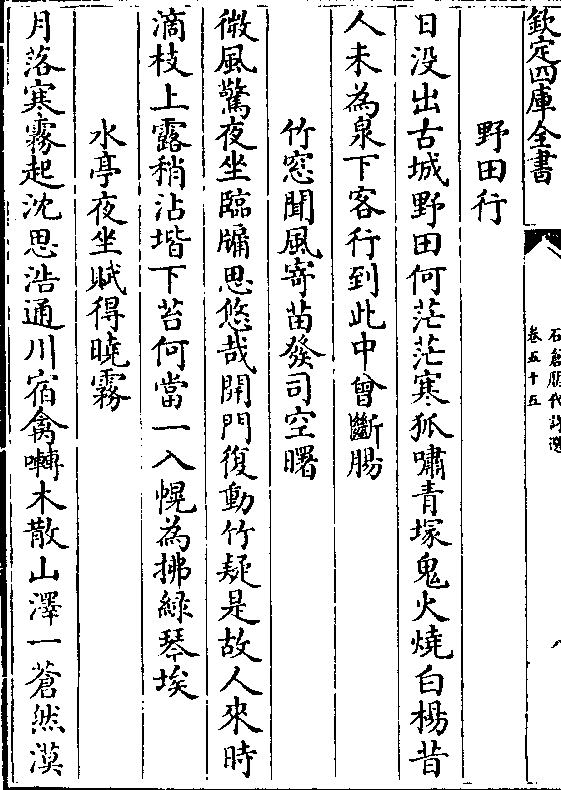 欽定四庫全書
石倉歷代詩選
卷五十五
八
野田行
日没出古城野田何茫茫寒狐嘯青塚鬼火燒白楊昔
人未為泉下客行到此中曾斷腸
竹窓聞風寄苗發司空曙
微風驚夜坐臨牖思悠哉開門復動竹疑是故人來時
滴枝上露稍沾堦下苔何當一入幌為拂綠琴埃
水亭夜坐賦得曉霧
月落寒霧起沈思浩通川宿禽囀木散山澤一蒼然漠